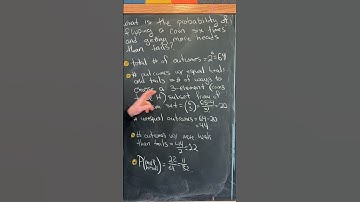 What is the probability of
flipping a coin six times
and getting more heads
than tails?
total number of outcomes = 2^6 = 64
# outcomes w/ equal heads
and tails = # of ways to
choose a 3-element
subset from a
set = (6 3) = 6·5·4/3! = 20
# unequal outcomes = 64-20
= 44
# outcomes w/ more heads
than tails = 44/2 = 22
P(more heads) = 22/64 = 11/32